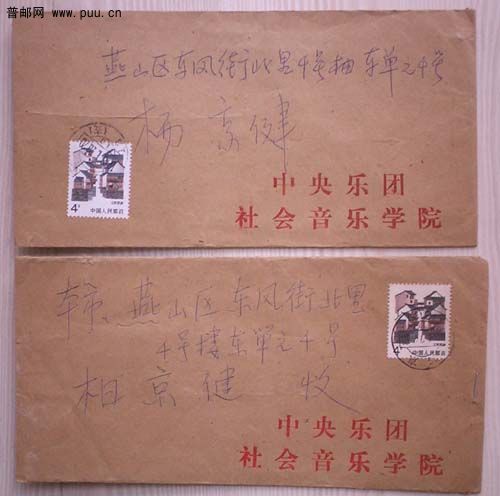 普邮网 www.puu.cn
燕山区东风街北里4号楼东单元4号
杨京健
4分
中国人民邮政
中央乐团
社会音乐学院
本市、燕山区东风街北里
4号楼东单元4号
相京健 收
4分
中国人民邮政
中央乐团
社会音乐学院